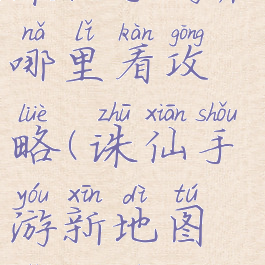 nǎ lǐ kàn gōng
哪里看攻
lüè zhū xiān shǒu
略(诛仙手
yóu xīn dì tú
游新地图